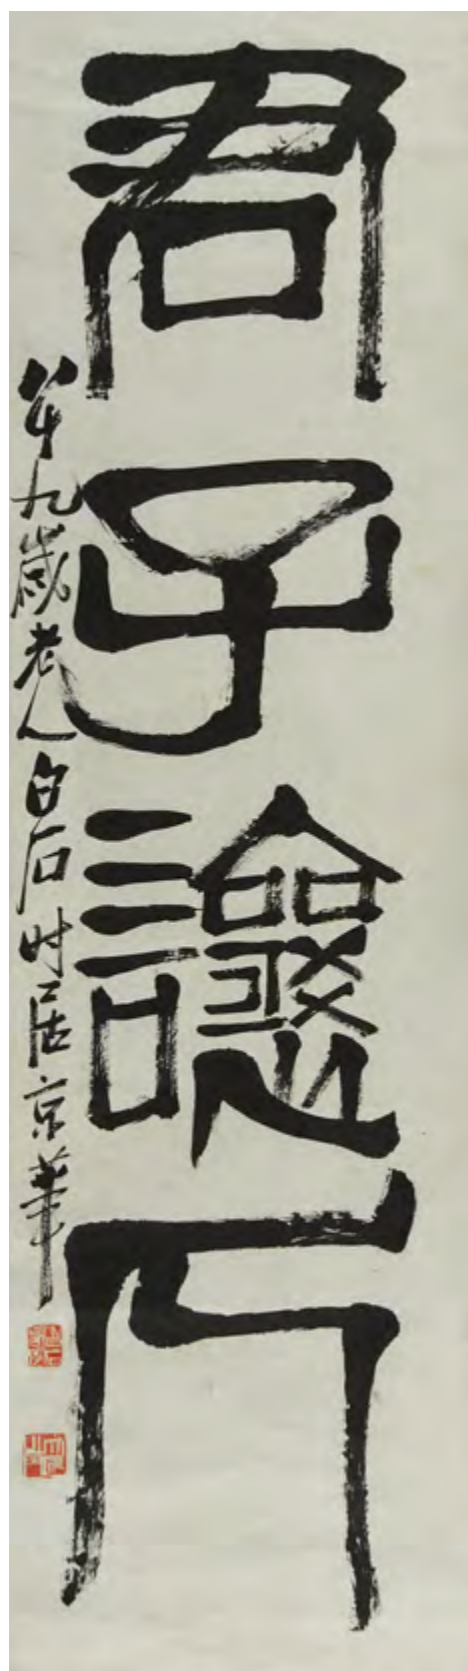 君子讓斤
八十九歲老人白石时居京華